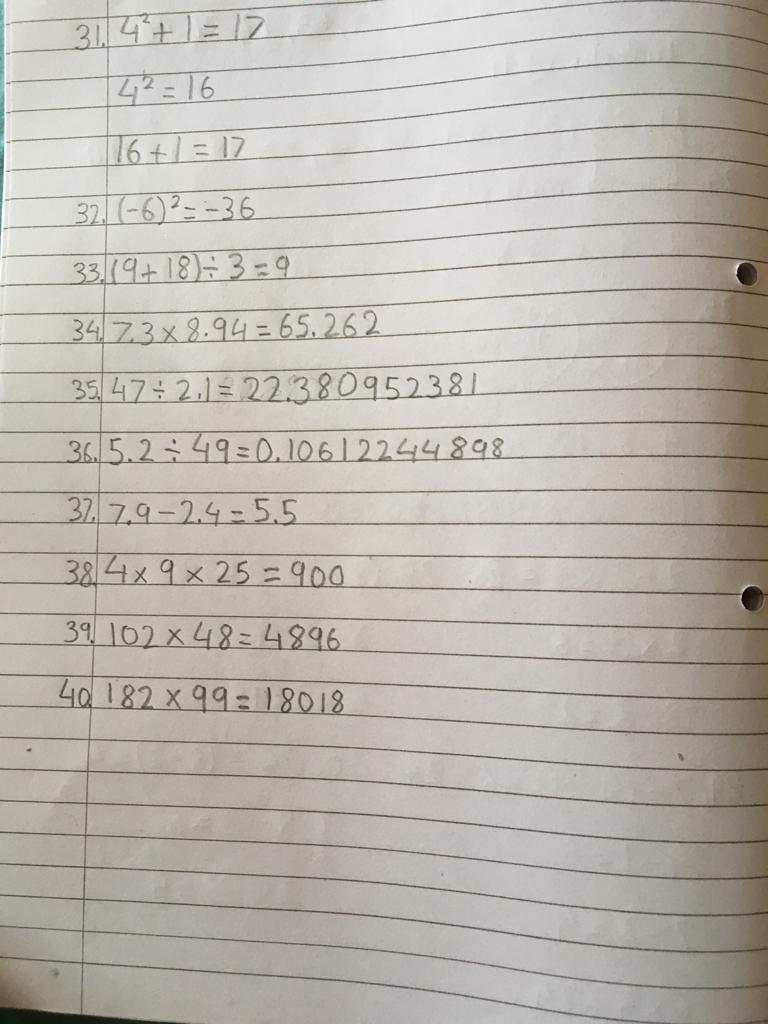 31. 4² + 1 = 17
4² = 16
16 + 1 = 17
32. (-6)² = -36
33. (9 + 18) ÷ 3 = 9
34. 7.3 × 8.94 = 65.262
35. 47 ÷ 2.1 = 22.380952381
36. 5.2 ÷ 49 = 0.10612244898
37. 7.9 - 2.4 = 5.5
38. 4 × 9 × 25 = 900
39. 102 × 48 = 4896
40. 182 × 99 = 18018